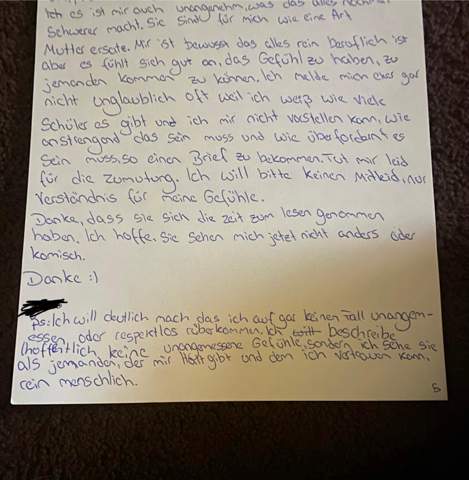 Ich es ist mir auch unangenehm, was das alles nochmal
Schwerer macht. Sie sind für mich wie eine Art
Mutter ersatz. Mir ist bewusst das alles rein beruflich ist
aber es fühlt sich gut an, das Gefühl zu haben, zu
jemanden kommen zu können. Ich melde mich eher gar
nicht unglaublich oft weil ich weiß wie viele
Schüler es gibt und ich mir nicht vostellen kann, wie
anstrengend das sein muss und wie überfordernt es
sein muss, so einen Brief zu bekommen. Tut mir leid
für die zumutung. Ich will bitte keinen Mitleid, nur
Verständnis für meine Gefühle.
Danke, dass sie sich die zeit zum lesen genommen
haben. Ich hoffe, Sie sehen mich jetzt nicht anders oder
komisch.
Danke :)
ps: Ich will deutlich mach das ich auf gar keinen Fall unangem-
essen, oder respektlos rüberkommen. Ich beschreibe
(hoffentlich) keine unangemessene Gefühle, sondern ich sehe sie
als jemanden, der mir Halt gibt und dem ich vertrauen kann,
rein menschlich.
5